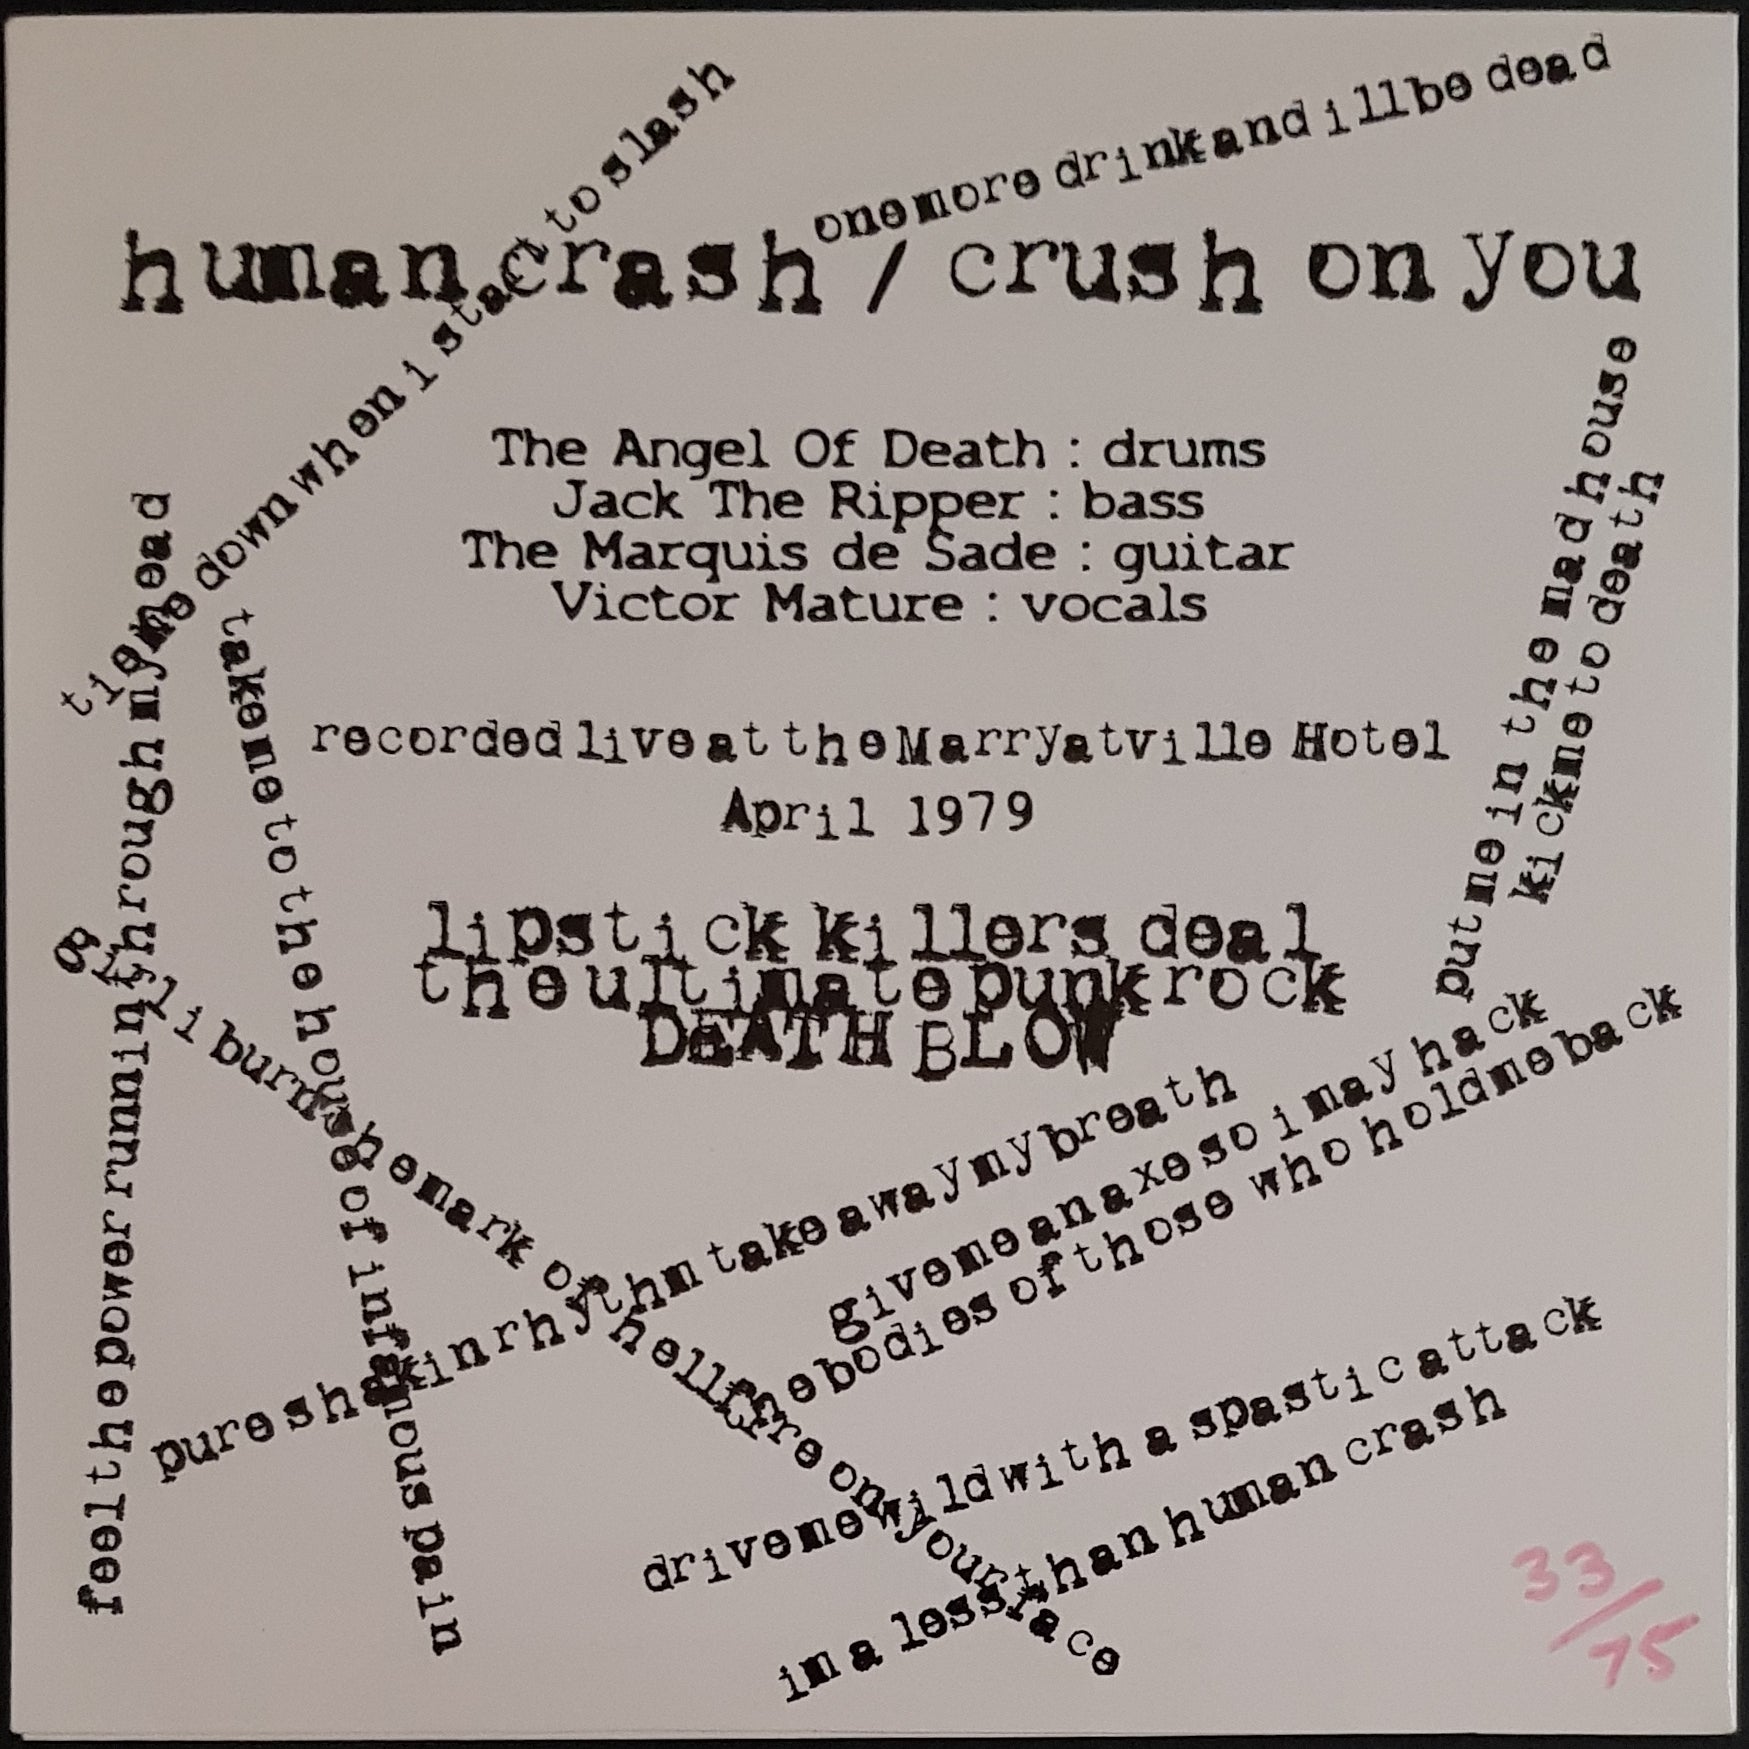 tie me down when i start to slash
one more drink and ill be dead
human crash / crush on you
The Angel Of Death : drums
Jack The Ripper : bass
The Marquis de Sade : guitar
Victor Mature : vocals
put me in the mad house
kick me to death
feel the power running through my head
take me to the house of infamous pain
recorded live at the Marryatville Hotel
April 1979
lipstick killers deal
the ultimate punk rock
DEATH BLOW
i burn the mark of hellfire on your face
pure shakin rhythm take away my breath
give me an axe so i may hack
the bodies of those who hold me back
drive me wild with a spastic attack
im a less than human crash
33/75